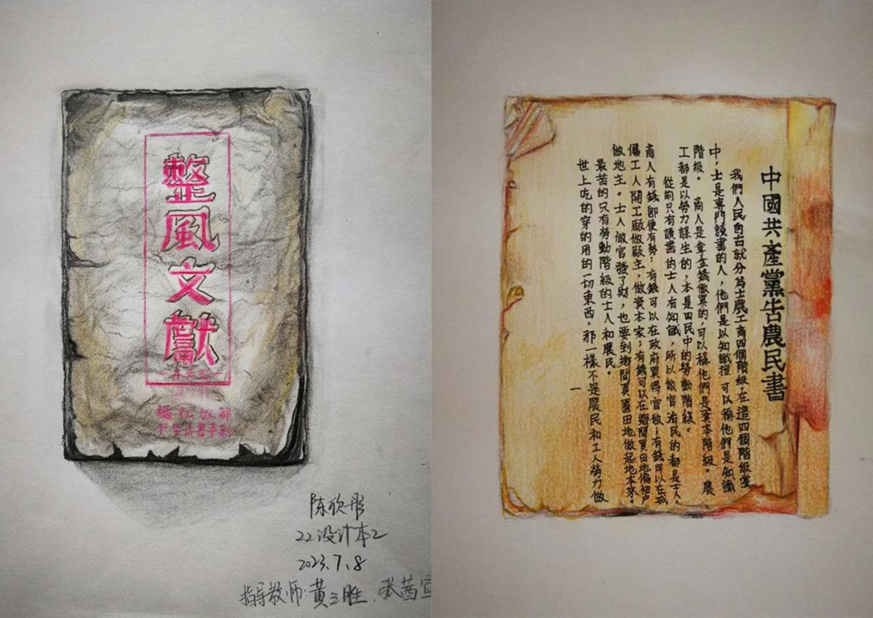 整風文獻
陈欣彤
22设计本2
2023.7.8
指导教师:黄三胜、张茜宣
中國共產黨告農民書
我們人民自古就分爲士農工商四個階級,在這四個階級當
中,士是專門讀書的人,他們是以知識 可以稱他們是知識
階級。 商人是拿金錢做買的,可以稱他們是資本階級。農
工都是以勞力謀生的,本是四民中的勞動階級。
從前只有讀書的士人有知識,所以做官治民的都是士人。
商人有錢卽便有勢,有錢可以在政府買得官做,有錢可以在城
傭工人開工廠做廠主,做資本家;有錢可以在鄉間買田地傭佃户
做地主。士人做官發了財,也要到鄉間買置田地做起地主來。
最苦的只有勞動階級的士人和農民。
世上吃的穿的用的一切東西,那一樣不是農民和工人勞力做
一